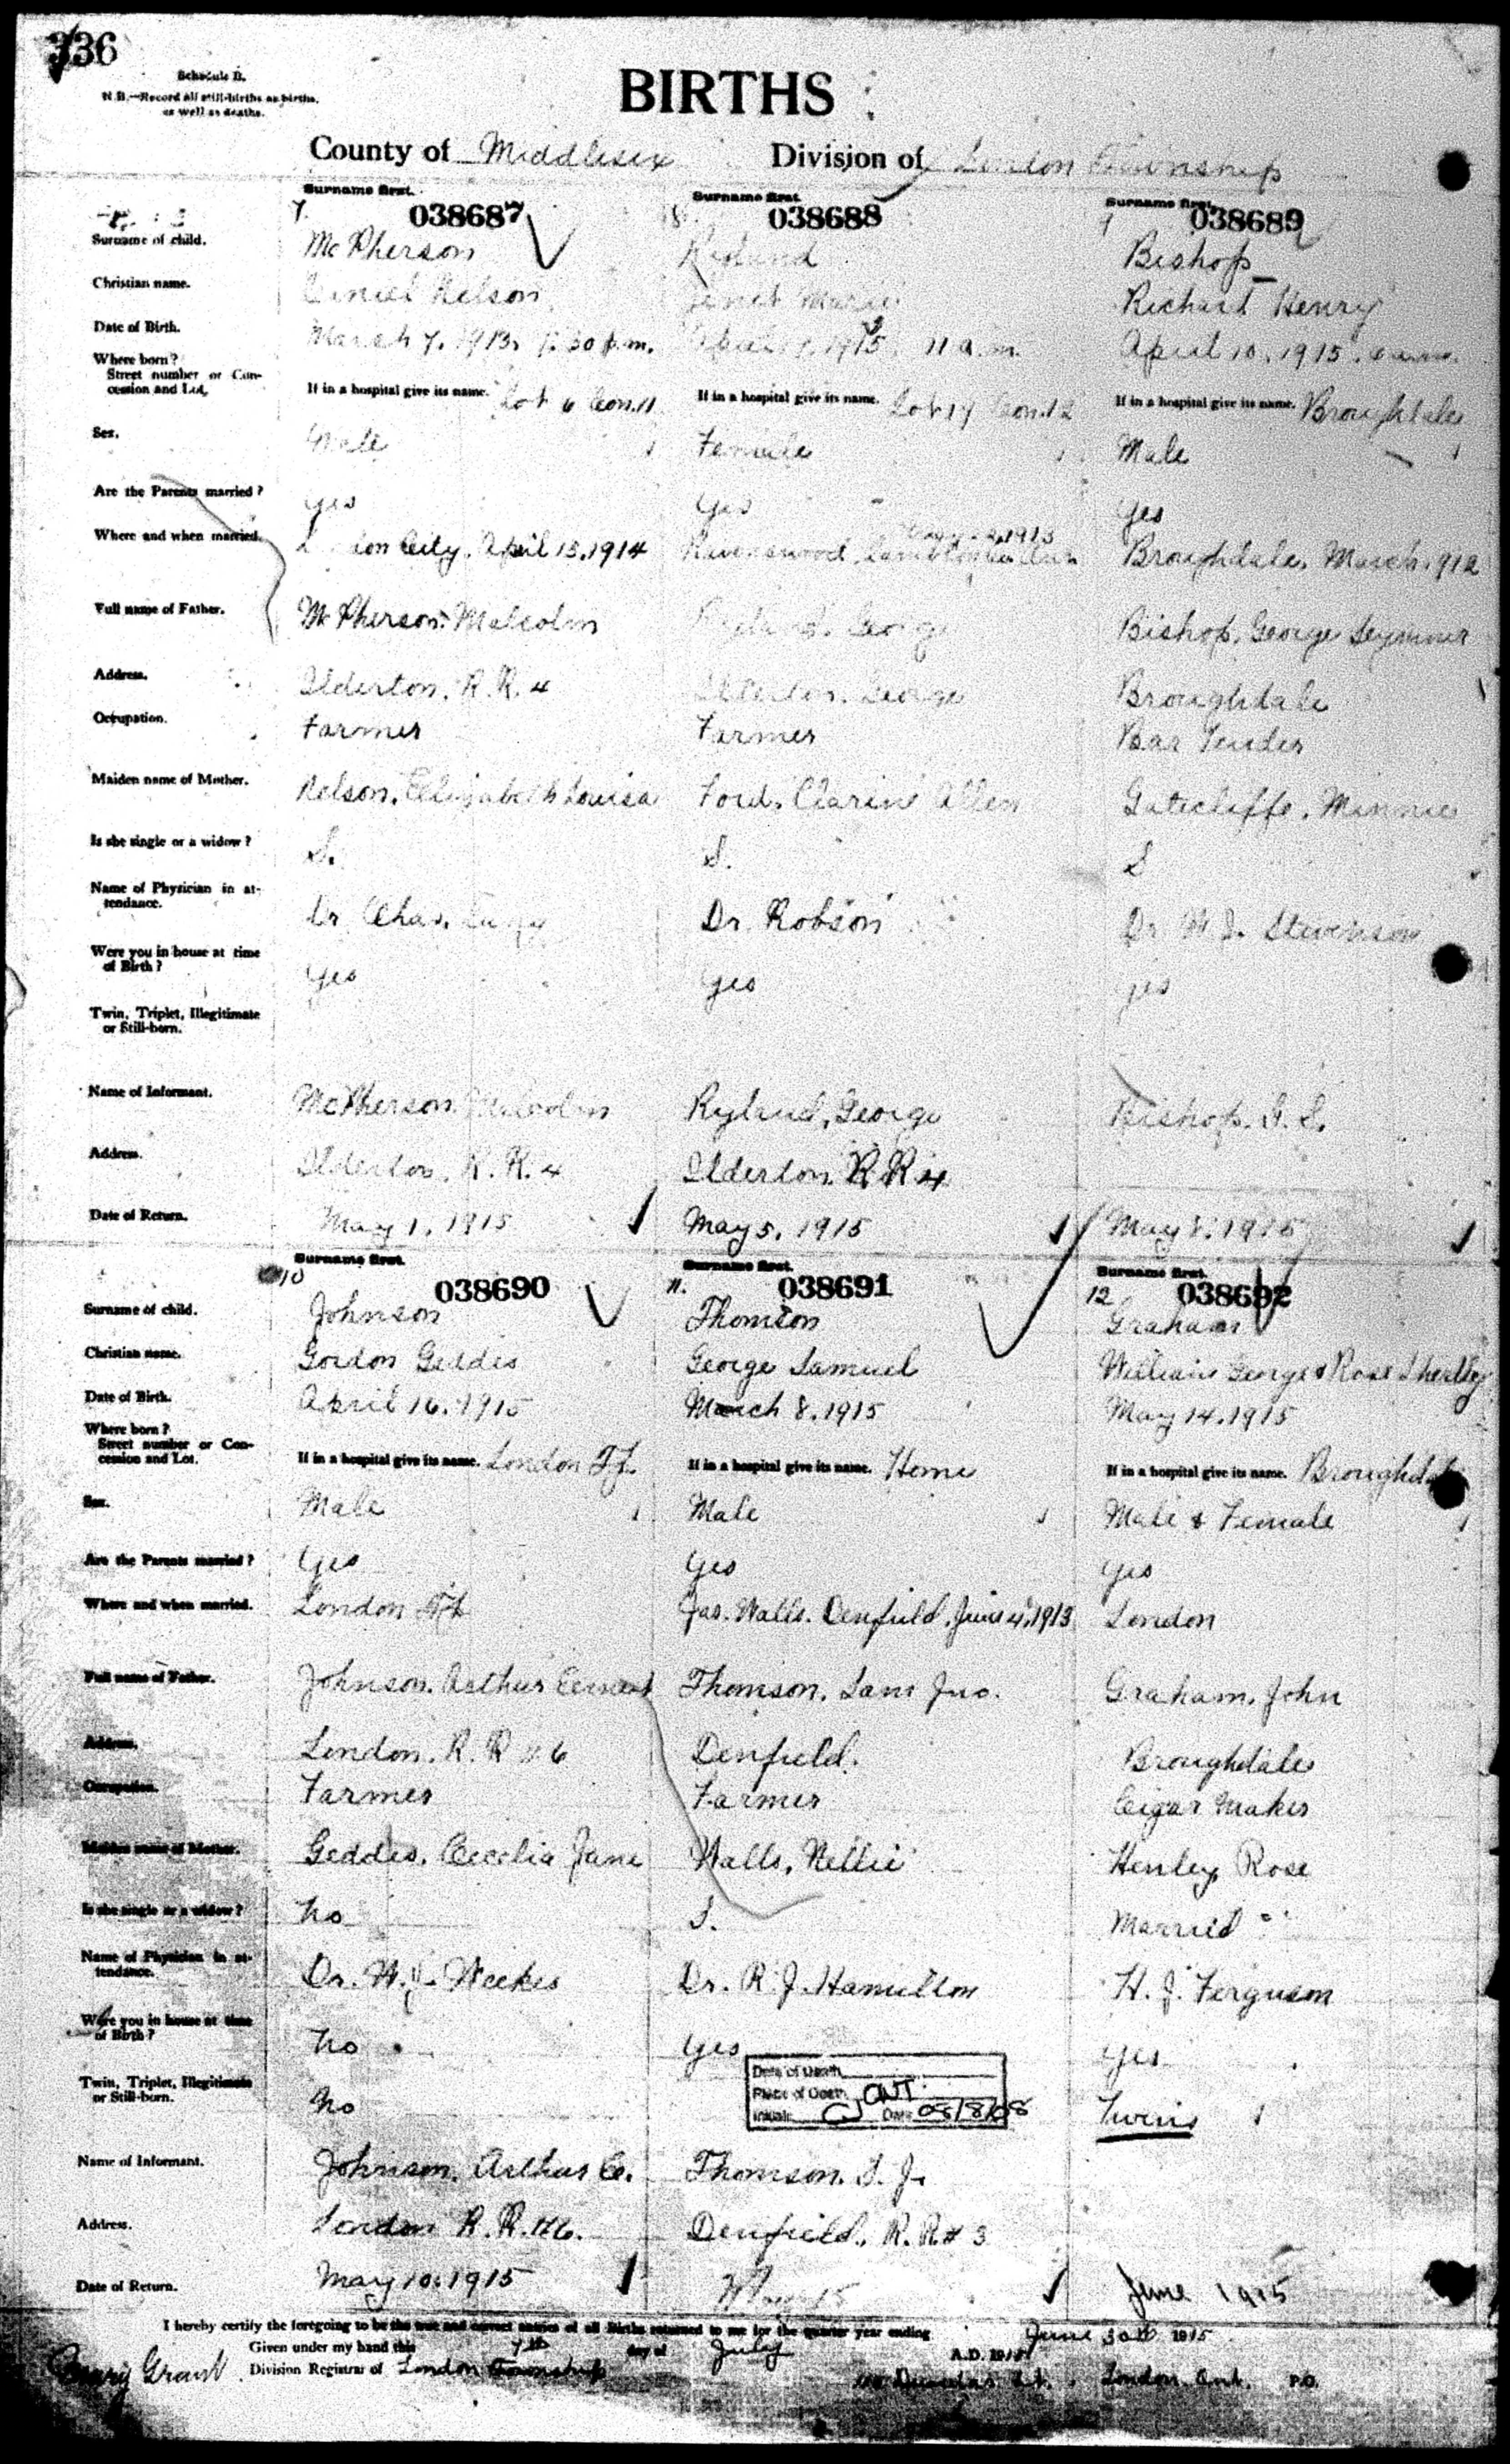 336
Schedule B.
N.B.—Record all still-births as births,
as well as deaths.
BIRTHS
County of Middlesex Division of London Township
Surname first. Surname first. Surname first.
7. 038687 8. 038688 9 038689
Surname of child. McPherson Ryland Bishop
Christian name. Nelson Janet Marie Richard Henry
Date of Birth. March 7. 1915 7.30 p.m. April 1915 11 a.m. April 10. 1915.
Where born?
Street number or Con-
cession and Lot. If in a hospital give its name. Lot 6 Con. 11 If in a hospital give its name. Lot 17 Con. 12 If in a hospital give its name. Broughdale
Sex. Male Female Male
Are the Parents married? Yes Yes Yes
Where and when married. London City. April 15. 1914 Ravenswood, Lambton 1913 Broughdale, March 1912
Full name of Father. McPherson Malcolm Ryland, George Bishop, George Seymour
Address. Ilderton, R.R. 4 Ilderton, George Broughdale
Occupation. Farmer Farmer Bar Tender
Maiden name of Mother. Nelson, Elizabeth Louisa Ford, Allen Gatecliffe, Minnie
Is she single or a widow? S. S. S
Name of Physician in at-
tendance. Dr Chas. Dr. Robson Dr. W J. Stevenson
Were you in house at time
of Birth? Yes Yes yes
Twin, Triplet, Illegitimate
or Still-born.
Name of Informant. McPherson Malcolm Ryland, George Bishop. G. S.
Address. Ilderton, R.R. 4 Ilderton R R 4
Date of Return. May 1, 1915 May 5, 1915 May 8, 1915
Surname first. Surname first. Surname first.
10 038690 11. 038691 12 038692
Surname of child. Johnson Thomson Graham
Christian name. Gordon Geddes George Samuel William George & Rose Shirley
Date of Birth. April 16. 1915 March 8. 1915 May 14. 1915
Where born?
Street number or Con-
cession and Lot. If in a hospital give its name. London Tp. If in a hospital give its name. Home If in a hospital give its name. Broughdale
Sex. Male Male Male & Female
Are the Parents married? Yes Yes Yes
Where and when married. London Tp. Jas. Walls. Denfield, June 4, 1913 London
Full name of Father. Johnson. Arthur Ernest Thomson, Sam Jno. Graham, John
Address. London. R. R # 6 Denfield. Broughdale
Occupation. Farmer Farmer Cigar Maker
Maiden name of Mother. Geddes, Cecelia Jane Walls, Nellie Henley, Rose
Is she single or a widow? No S. Married
Name of Physician in at-
tendance. Dr. W. J. Weekes Dr. R. J. Hamilton H. J. Ferguson
Were you in house at time
of Birth? No Yes Yes
Date of Death
Place of Death ONT.
Initials CJ Date 08/8/08
Twin, Triplet, Illegitimate
or Still-born. No Twins
Name of Informant. Johnson, Arthur E. Thomson. S. J.
Address. London R.R. #6. Denfield, R.R. # 3
Date of Return. May 10, 1915 May 15 June 1915
I hereby certify the foregoing to be the true and correct entries of all Births returned to me for the quarter year ending June 30th 1915
Given under my hand this 7th day of July A.D. 1915
Mary Grant Division Registrar of London Township Dundas St. London. Ont. P.O.